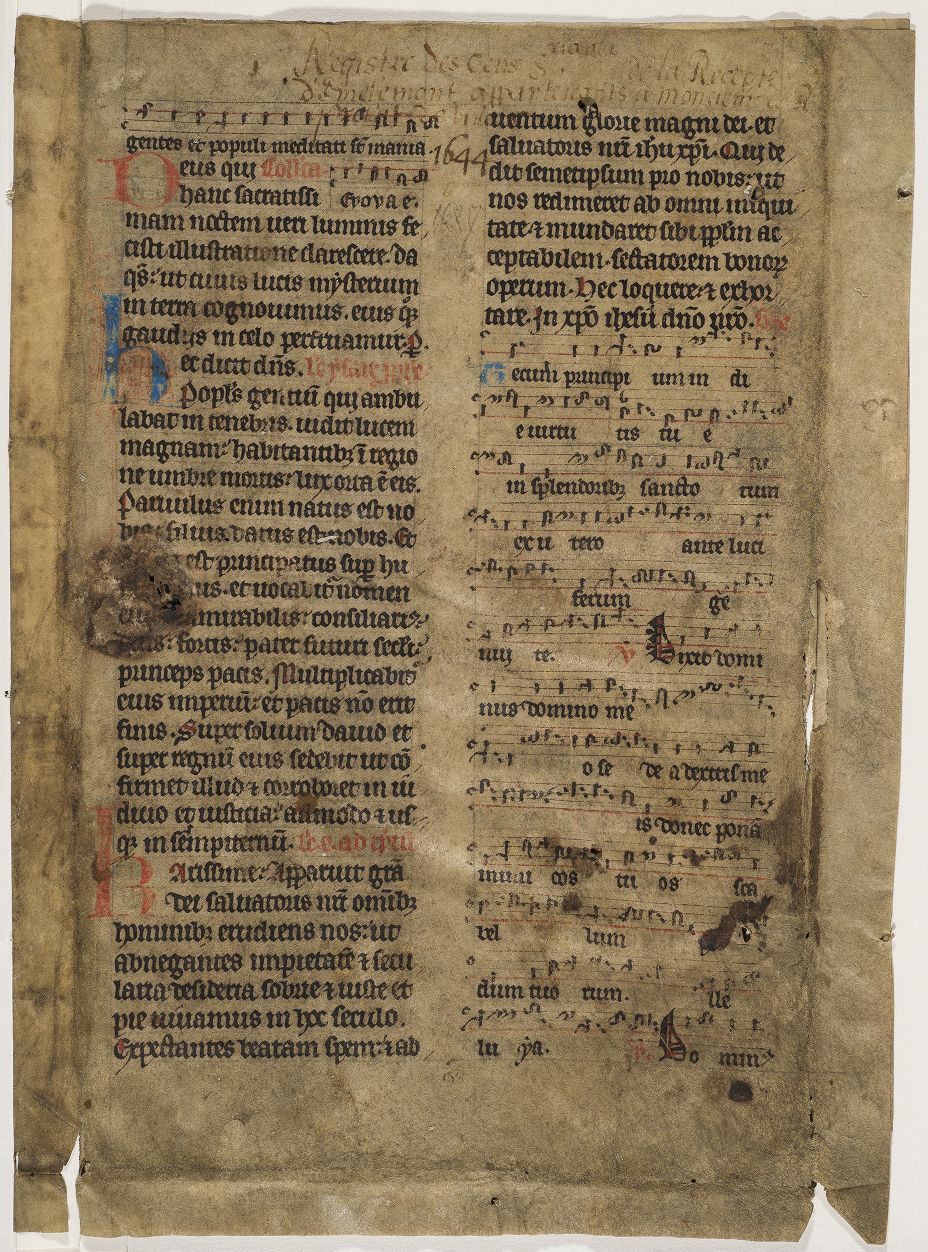 Registre des Cens de la Recepte
appartenants a monsieur
1644
gentes et populi meditati st mania.
Deus qui Collca
hanc sacratissi Evovae.
mam noctem ueri luminis fe
cisti illustratione clarescere. da
qs. ut cuius lucis mysterium
in terra cognouimus. eius qz
gaudijs in celo perfruamur. P.
Hec dicit dns. le ysaie pphe
Popls gentiu qui ambu
labat in tenebris. uidit lucem
magnam. habitantibz i regio
ne umbre mortis. lux orta e eis.
Paruulus enim natus est no
bis. filius datus est nobis. Et
est principatus sup hu
ius. et uocabit nomen
mirabilis. consiliari
fortis. pater futuri secli.
princeps pacis. Multiplicabit
eius imperiu. et pacis no erit
finis. Super solium dauid et
super regnu eius sedebit ut co
firmet illud ⁊ corroboret in iu
dicio et iusticia. ammodo ⁊ us
qz in sempiternu.
Karissime. Apparuit gra
dei saluatoris nri omibz
hominibz erudiens nos. ut
abnegantes impietate ⁊ secu
laria desideria sobrie ⁊ iuste et
pie uiuamus in hoc seculo.
Expectantes beatam spem. ⁊ ad
uentum glorie magni dei. et
saluatoris nri ihu xpi. Qui de
dit semetipsum pro nobis. ut
nos redimeret ab omni iniqui
tate. ⁊ mundaret sibi pplm ac
ceptabilem. sectatorem bonor
operum. Hec loquere. ⁊ exhor
tare. In xpo ihesu dno nro.
Tecum principi um in di
e uirtu tis tu e
in splendoribz sancto rum
ex u tero ante luci
ferum ge
nui te. V Dixit domi
nus domino me
o se de a dextris me
is donec pona
inimi cos tu os sca
bel lum
dum tuo rum. Alle
lu ya. V. Do min